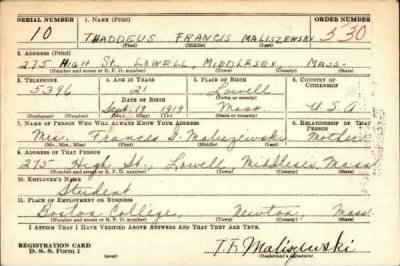 SERIAL NUMBER 1. NAME (Print) ORDER NUMBER
10 THADDEUS FRANCIS MALISZEWSKI 530
(First) (Middle) (Last)
2. ADDRESS (Print)
275 HIGH St. LOWELL, MIDDLESEX MASS.
(Number and street or R. F. D. number) (Town) (County) (State)
3. TELEPHONE 4. AGE IN YEARS 5. PLACE OF BIRTH 6. COUNTRY OF CITIZENSHIP
5396 21 Lowell
DATE OF BIRTH (Town or county)
Sept. 19 1919 Mass U.S.A
(Exchange) (Number) (Mo.) (Day) (Yr.) (State or country)
7. NAME OF PERSON WHO WILL ALWAYS KNOW YOUR ADDRESS 8. RELATIONSHIP OF THAT PERSON
Mrs. Frances Maliszewski Mother
(Mr., Mrs., Miss) (First) (Middle) (Last)
9. ADDRESS OF THAT PERSON
275 High St., Lowell Middlesex, Mass
(Number and street or R. F. D. number) (Town) (County) (State)
10. EMPLOYER'S NAME
Student
11. PLACE OF EMPLOYMENT OR BUSINESS
Boston College, Newton, Mass.
(Number and street or R. F. D. number) (Town) (County) (State)
I AFFIRM THAT I HAVE VERIFIED ABOVE ANSWERS AND THAT THEY ARE TRUE.
REGISTRATION CARD
D. S. S. Form 1 (over) T.F. Maliszewski
(Registrant's signature)